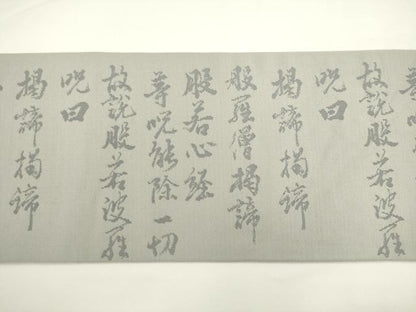 故説般若波羅
呪曰
揭諦揭諦
般羅僧揭諦
般若心經
等呪能除一切
故説般若波羅
呪曰
揭諦揭諦